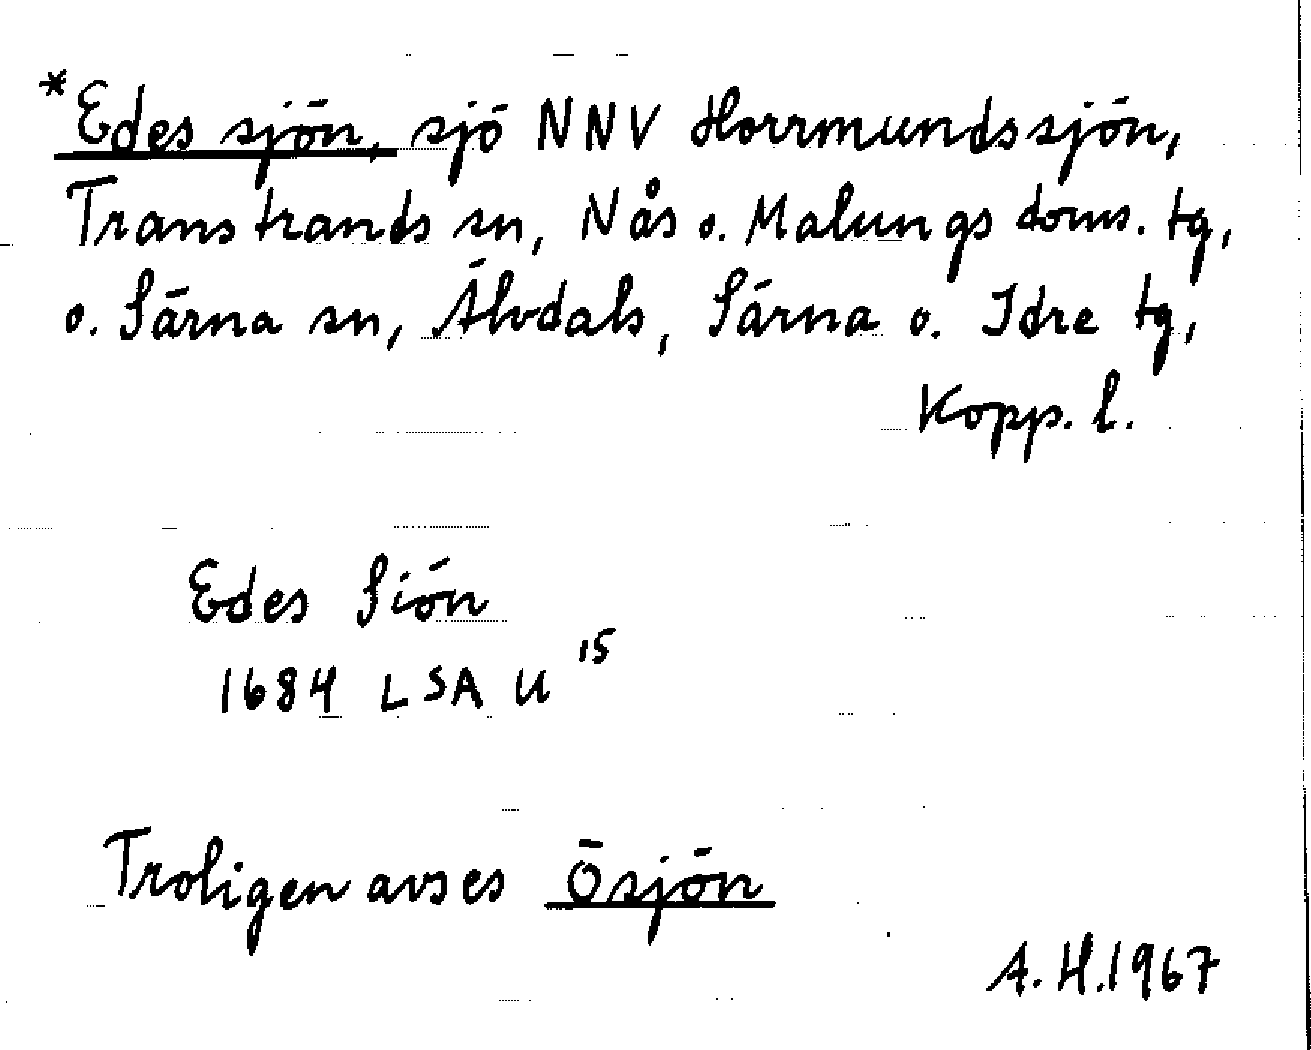 *Edessjön, sjö NNV Horrmundssjön,
Transtrands sn, Nås o. Malungs doms. tg,
o. Särna sn, Älvdals, Särna o. Idre tg,
Kopp. l.
Edes Siön
1684 LSA U 15
Troligen avses Ösjön
A.H.1967